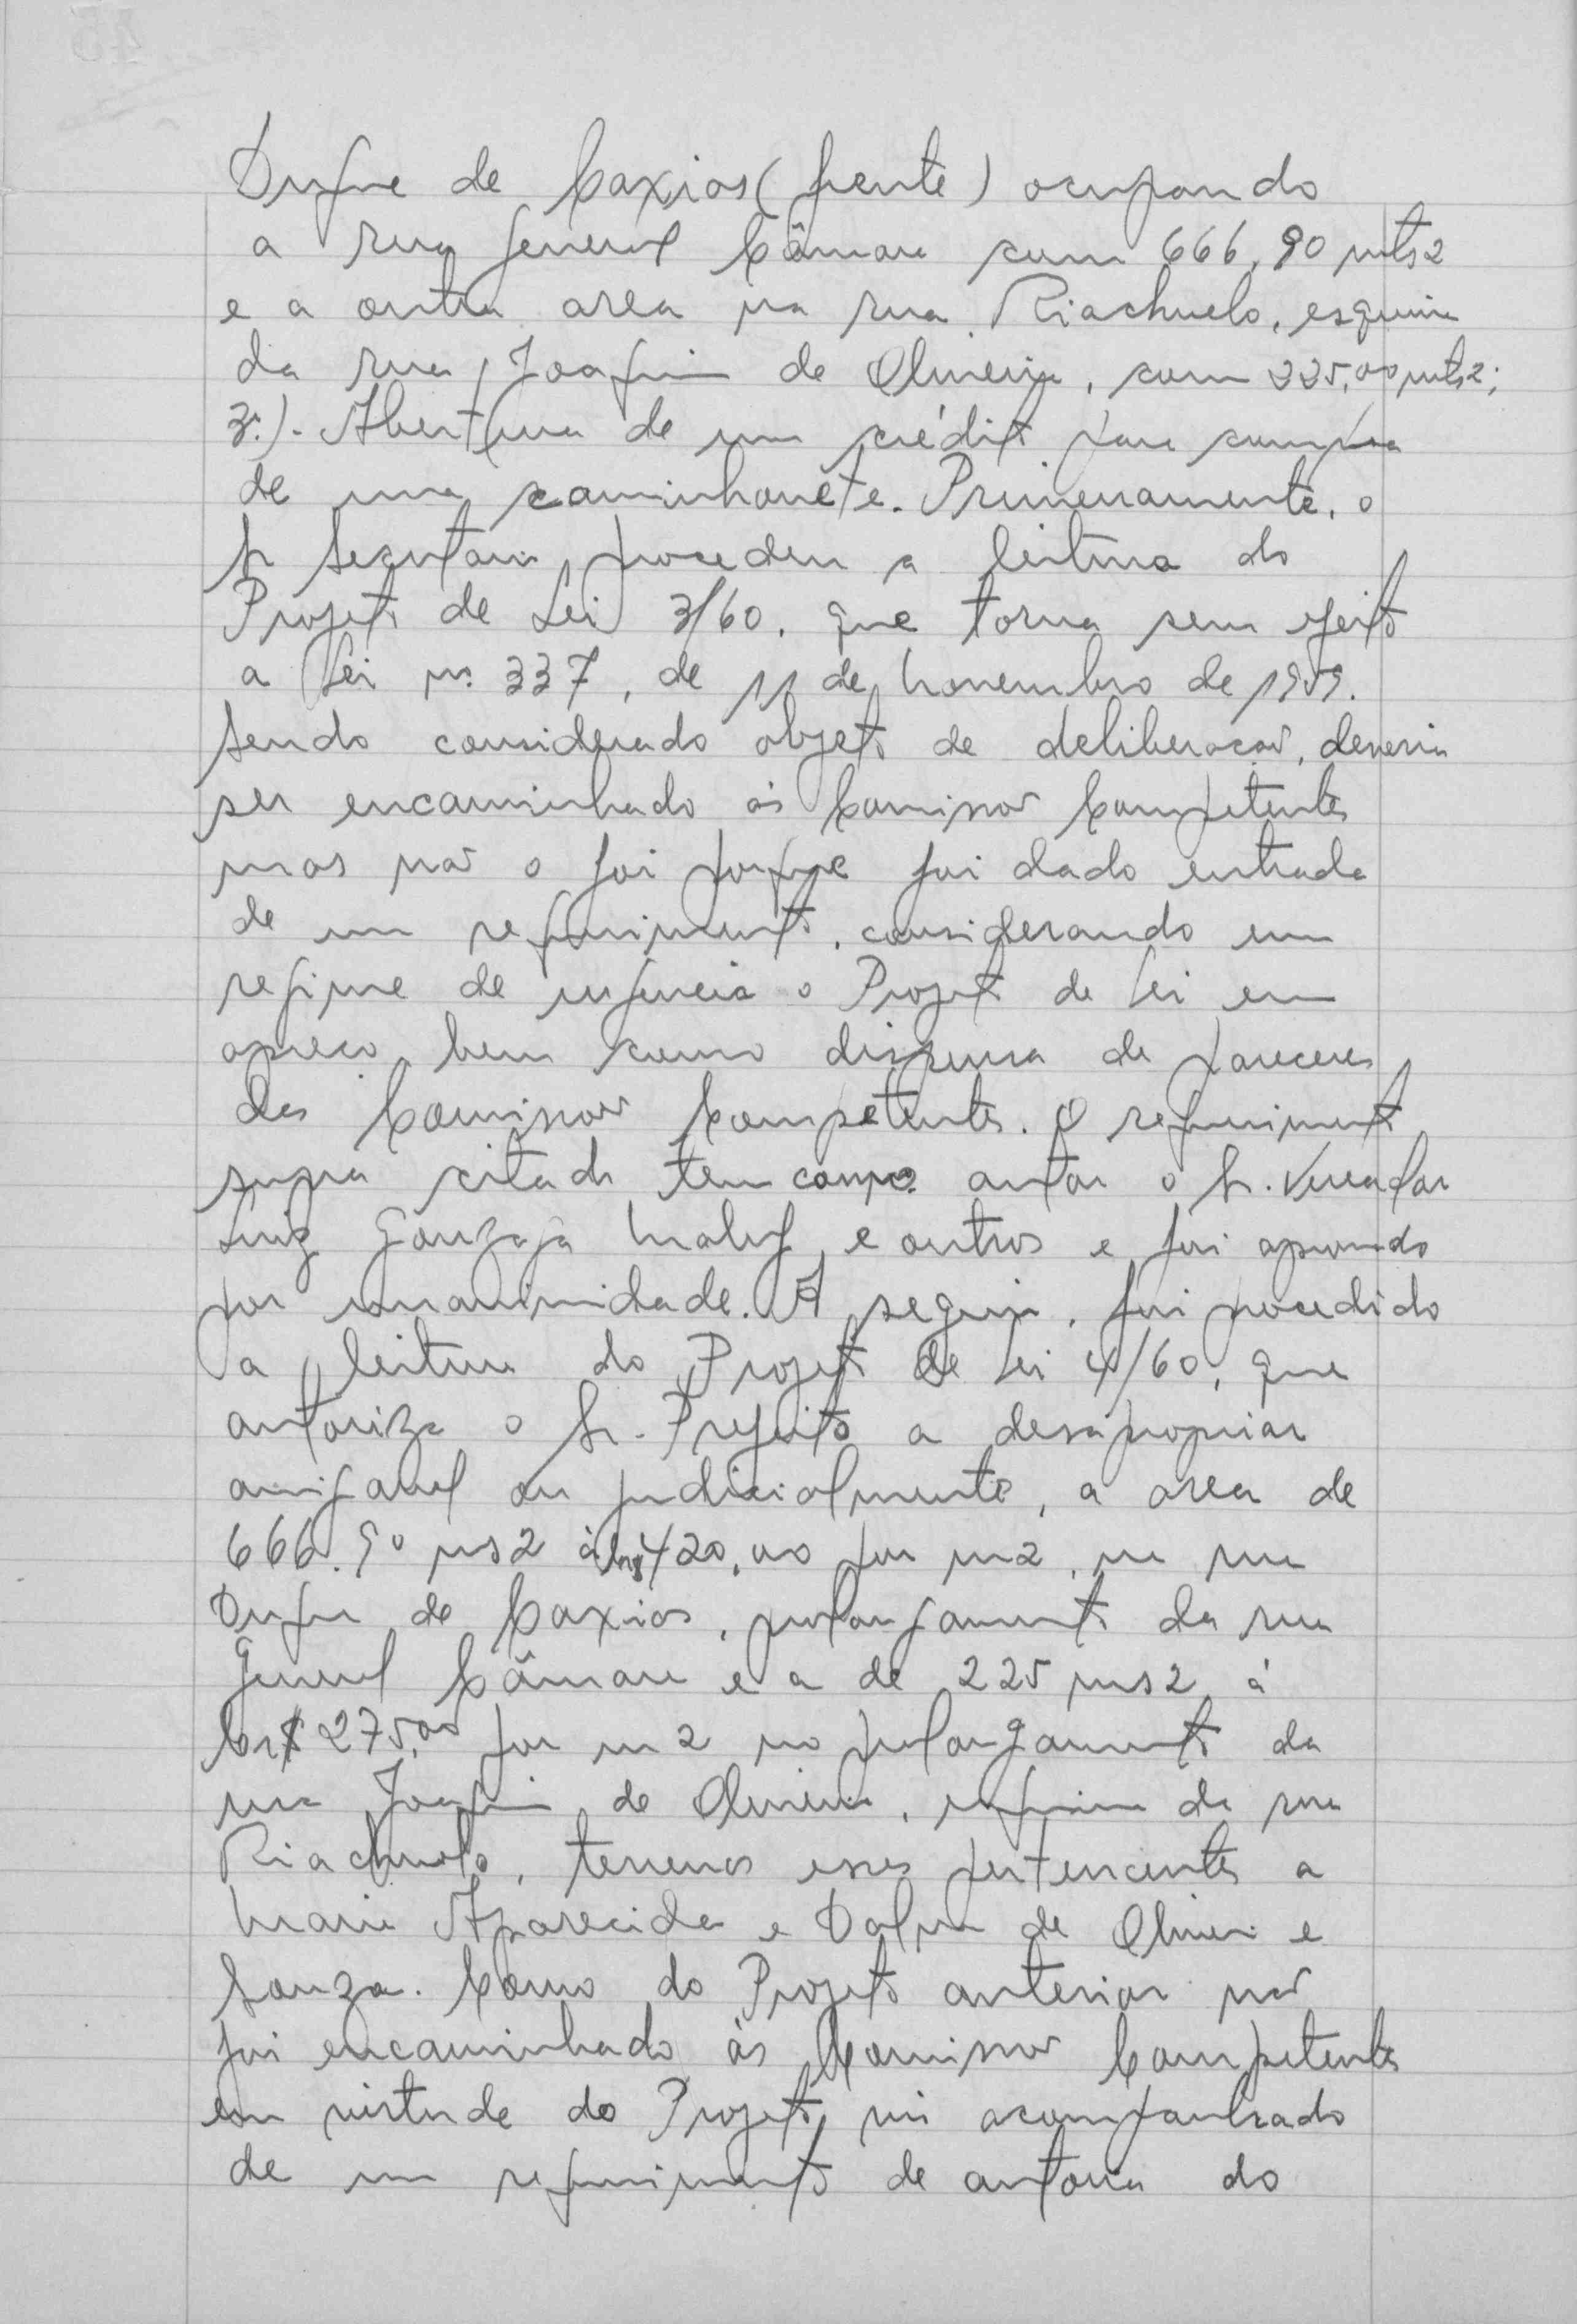 Duque de Caxias (frente) ocupando
a rua General Câmara com 666,90 mts2
e a outra area na rua Riachuelo, esquina
da rua Joaquim de Oliveira, com 225,00 mts2;
3º.)- Abertura de um crédito para compra
de uma caminhonete. Primeiramente, o
Sr Secretario procedeu a leitura do
Projeto de Lei 3/60, que torna sem efeito
a Lei nº 337, de 11 de Novembro de 1959.
Sendo considerado objeto de deliberacao, deveria
ser encaminhado às Comissões Competentes
mas não o foi porque foi dado entrada
de um requerimento, considerando em
regime de urgencia o Projeto de Lei em
apreco, bem como dispensa de pareceres
das Comissões Competentes. O requerimento
supra citado tem como autor o Sr. Vereador
Luiz Gonzaga Maluf e outros e foi aprovado
por unanimidade. A seguir, foi procedido
a leitura do Projeto de Lei 4/60, que
autoriza o Sr. Prefeito a desapropriar
amigavel ou judicialmente, a area de
666.90 ms2 à 420,00 por m2, na rua
Duque de Caxias, prolongamento da rua
General Câmara e a de 225 ms2 à
Cr$ 275,00 por m2 no prolongamento da
rua Joaquim de Oliveira, esquina da rua
Riachuelo, terrenos esses pertencentes a
Maria Aparecida e Dalva de Oliveira e
Souza. Como do Projeto anterior não
foi encaminhado às Comissões Competentes
em virtude do Projeto vir acompanhado
de um requerimento de autoria do